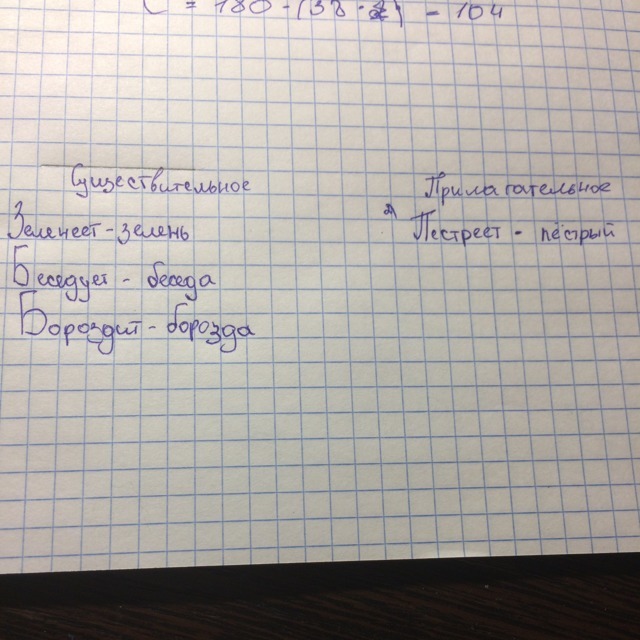 = 180 - (38 · 2) = 104
Существительное
Прилагательное
Зеленеет - зелень
Пестреет - пёстрый
Беседует - беседа
Бороздит - борозда